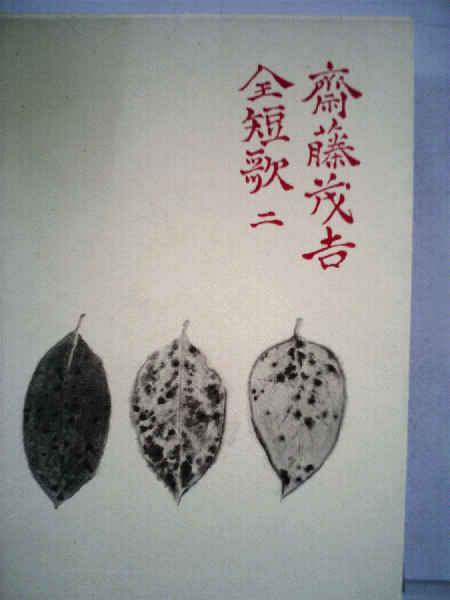 齋藤茂吉
全短歌 二